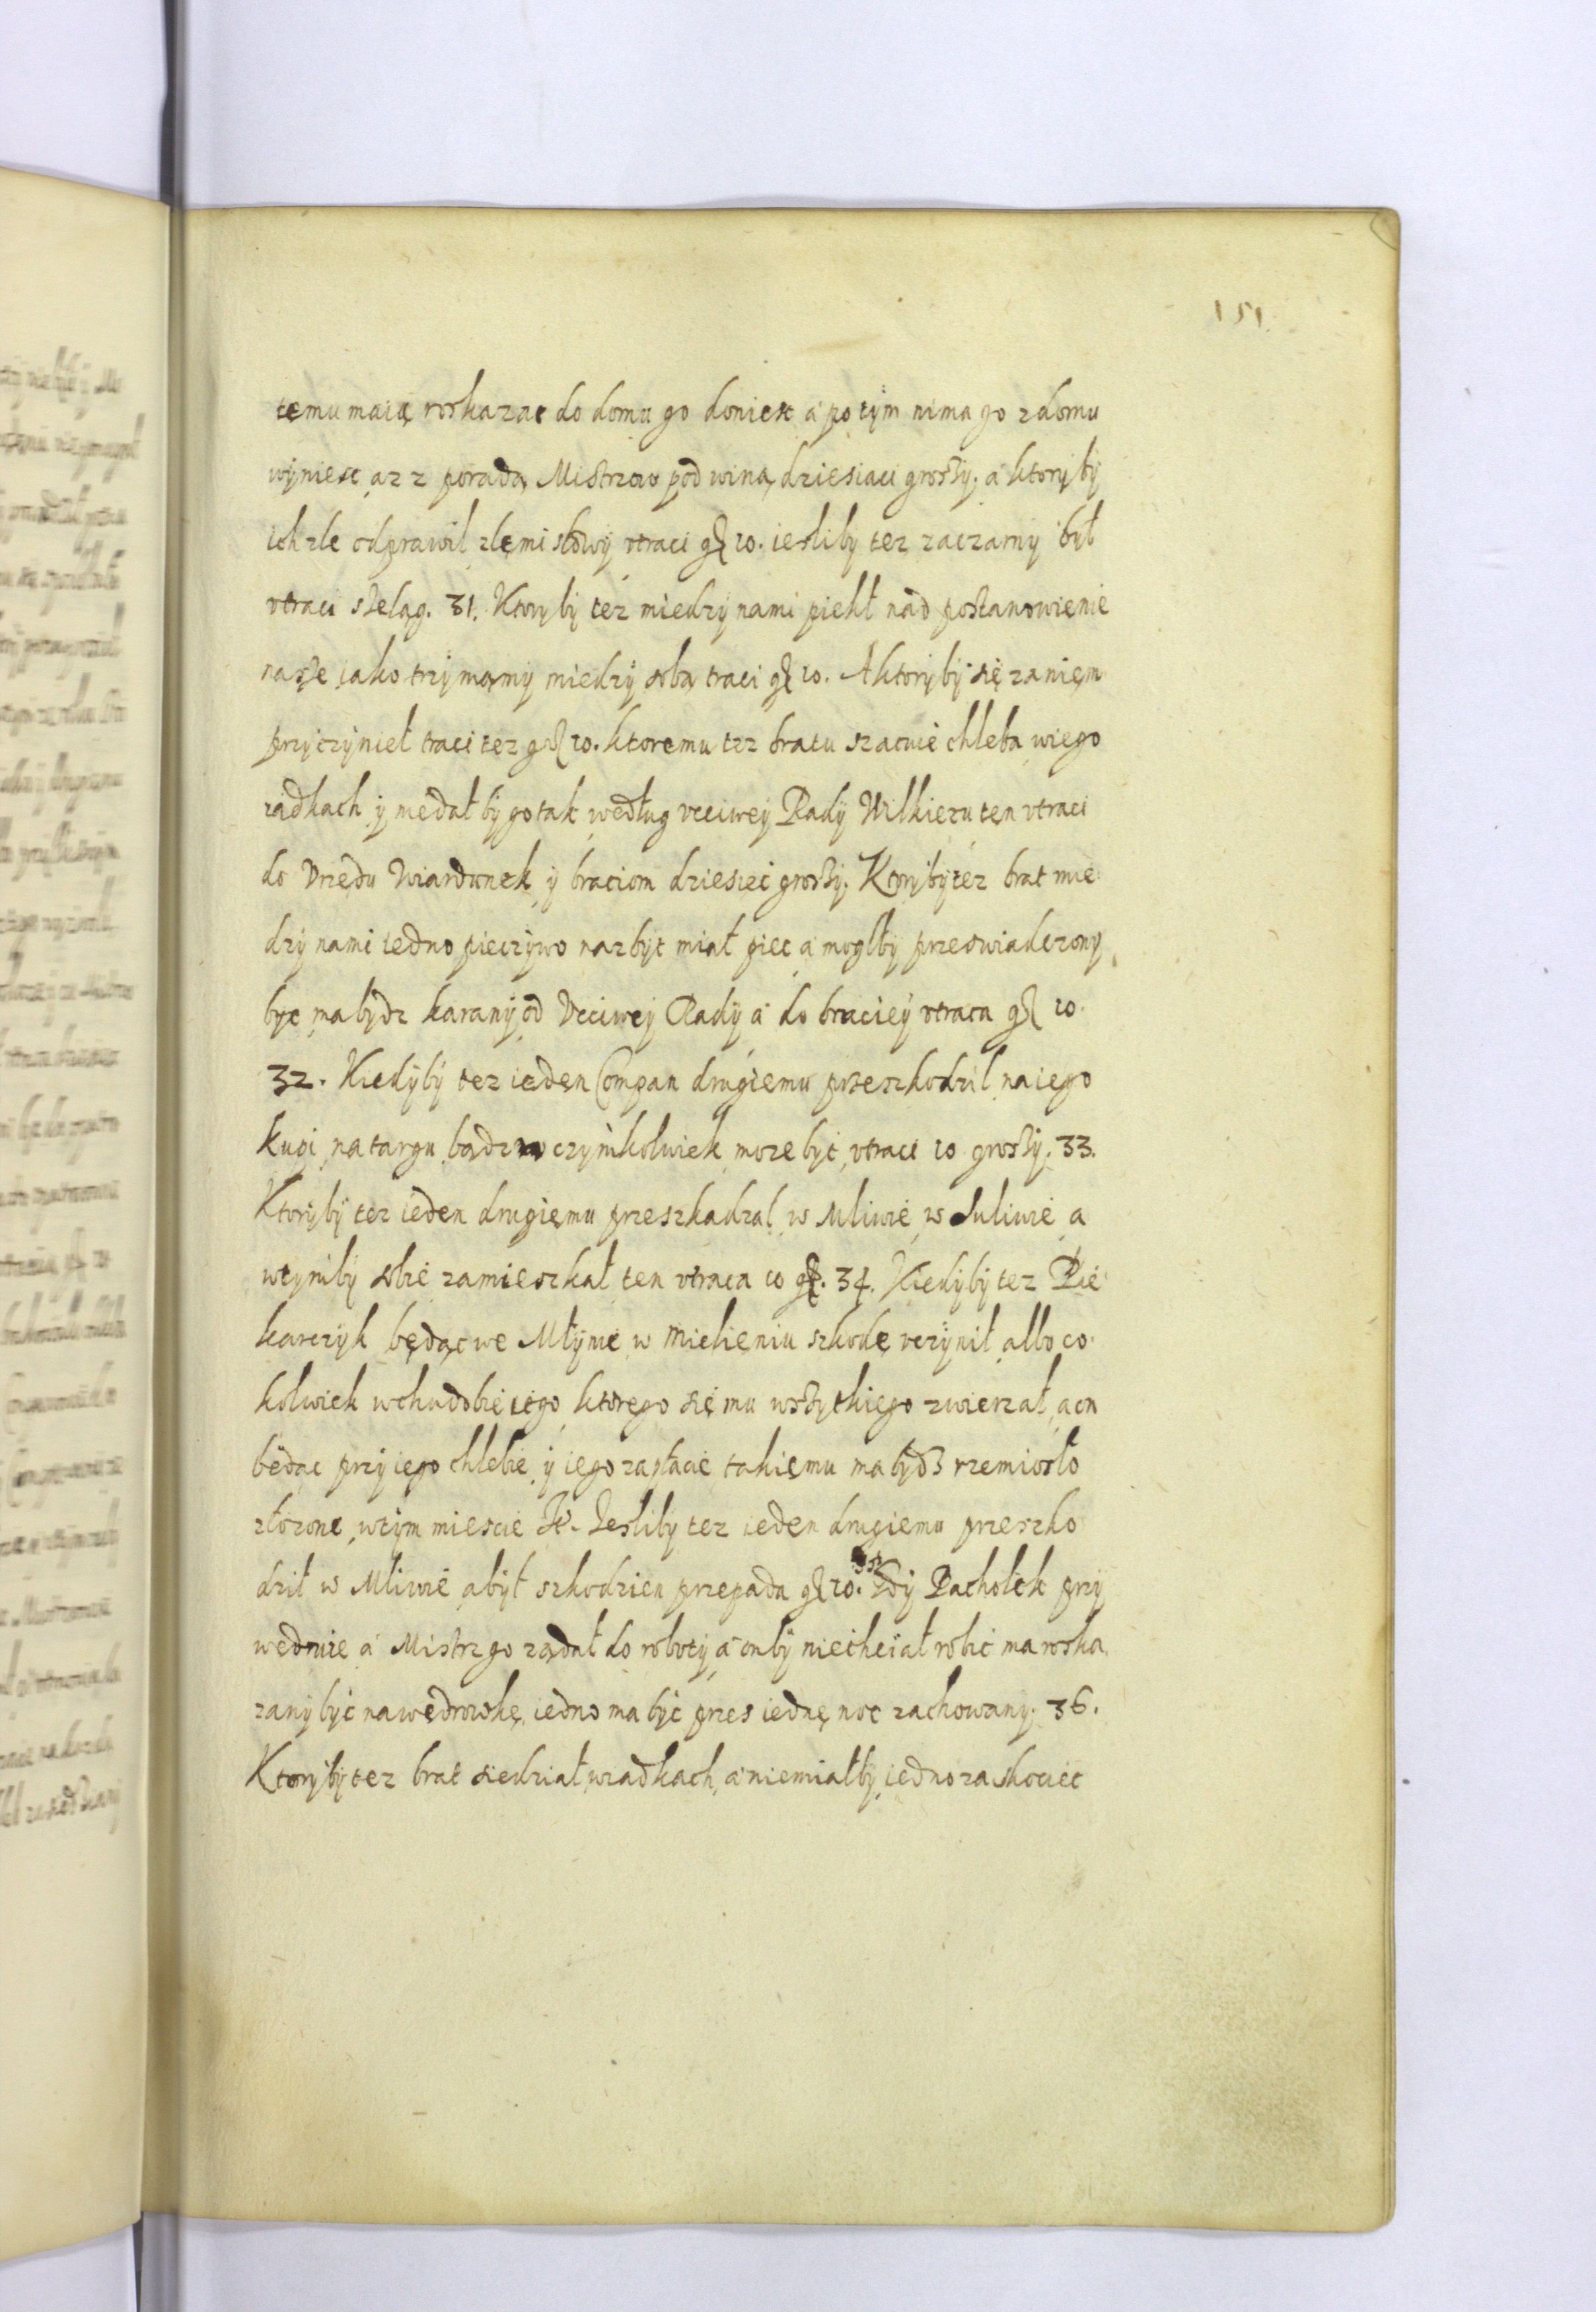 151.
temu maią roskazac do domu go doniesc a potym nima go z domu
wyniesc az z poradą Mistrzow pod winą dziesiąci groszy. a ktory by
ich zle odprawił zlemi słowy vtraci gř 10. iesliby tez zaczarny był
vtraci szeląg. 31. Ktory by tez miedzy nami piekł nad postanowienie
nasze iako trzymamy miedzy sobą traci gř 10. A ktory by się za niem
przyczynieł traci tez gř 10. ktoremu tez bratu szacuie chleba w iego
iadkach y niedał by go tak według vcciwey Rady Wilkierzu ten vtraci
do Vrzędu Wiardunek y braciom dziesiec groszy. Ktory by tez brat mie
dzy nami iedno pieczywo nazbyt miał piec a mogłby przeswiadczony
byc ma bydz karany od Vcciwey Rady a do braciey vtraca gř 10.
32. Kiedyby tez ieden Compan drugiemu przeszkodził na iego
kupi na targu bądz w czymkolwiek moze być, vtraci 10 groszy. 33.
Ktoryby tez ieden drugiemu przeszkadzał w Mliwie w Suliwie a
wtymby sobie zamieszkał ten vtraca 10 gř. 34. Kiedyby tez Pie
karczyk będąc we Młynie w mieliеniu szkodę vczynił albo co
kolwiek w chudobie iego ktorego się mu wszytkiego zwierzał, a on
bedąc przy iego chlebie y iego zapłacie takiemu ma bydz rzemiosło
złozone w tym miescie Jesliby tez ieden drugiemu przeszko
dził w Mliwie a był szkodzien przepada gř 10. 35. Gdy Pachołek przy
wędruie a Mistrz go ządał do roboty a onby niechciał robić ma roska
zany być na wędrowkę iedno ma być przes iednę noc zachowany. 36.
Ktoryby tez brat siedział w iadkach a niemiałby iedno za skociec